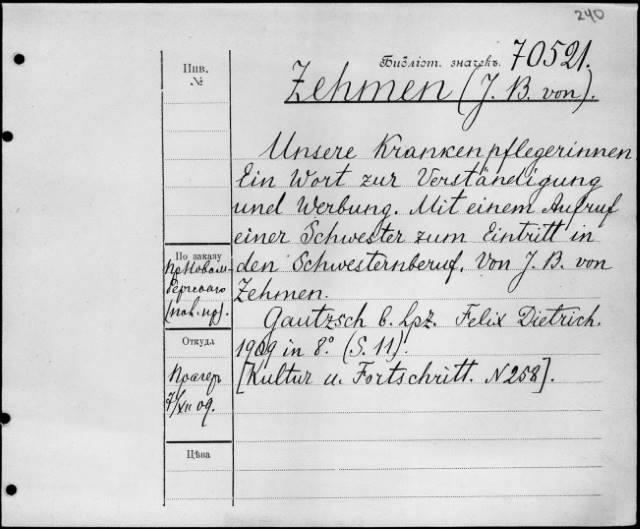 240
Библіот. значекъ. 70521.
Zehmen (J. B. von).
Инв.
№
Unsere Krankenpflegerinnen
Ein Wort zur Verständigung
und Werbung. Mit einem Aufruf
einer Schwester zum Eintritt in
den Schwesternberuf. Von J. B. von
Zehmen.
Gautzsch b. Lpz. Felix Dietrich.
1909 in 8° (S. 11).
[Kultur u. Fortschritt. N 258].
По заказу
Откуда
Прагеръ
7/XII 09.
Цѣна